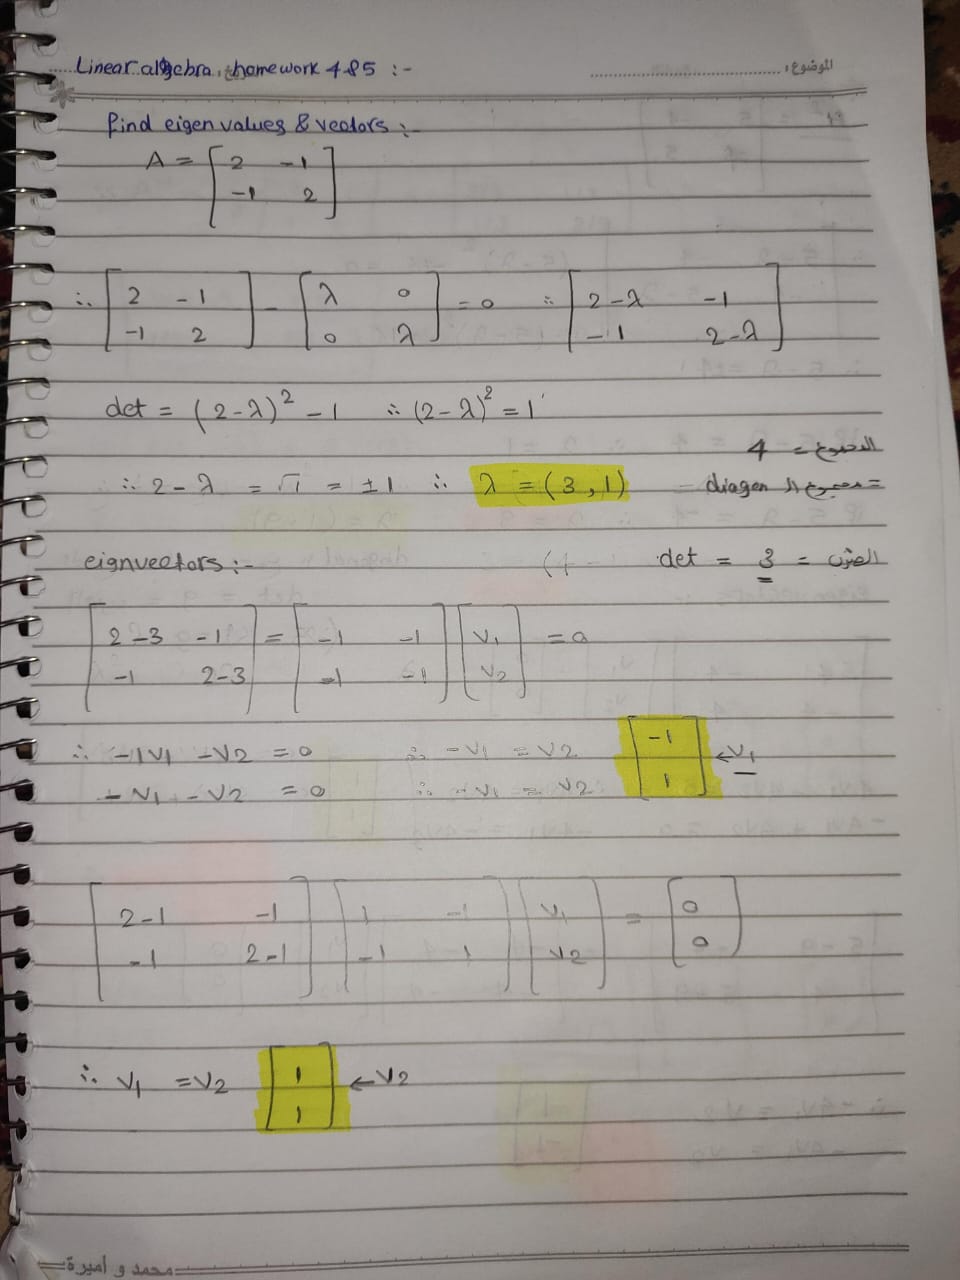 Linear algebra, homework 4&5 :-
الموضوع:
find eigen values & vectors :-
A = [2 -1
-1 2]
∴ [2 -1 ; -1 2] - [λ 0 ; 0 λ] = 0 ∴ [2-λ -1 ; -1 2-λ]
det = (2-λ)² - 1 ∴ (2-λ)² = 1
المجموع = 4
∴ 2-λ = √1 = ±1 ∴ λ = (3, 1)
= مجموع ال diagon
eignvectors :- det = 3 = الضرب
[2-3 -1 ; -1 2-3] = [-1 -1 ; -1 -1] [v1 ; v2] = 0
∴ -1v1 -v2 = 0 ∴ -v1 = v2 [-1 ; 1] ← v1
-v1 - v2 = 0 ∴ -v1 = v2
[2-1 -1 ; -1 2-1] [1 -1 ; -1 1] [v1 ; v2] = [0 ; 0]
∴ v1 = v2 [1 ; 1] ← v2
محمد و أميرة